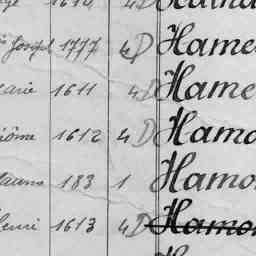 1614 4D
Joseph 1777 4D Hame
arie 1611 4D Hame
rôme 1612 4D Hamo
183 1 Hamo
Henri 1613 4D Hamo